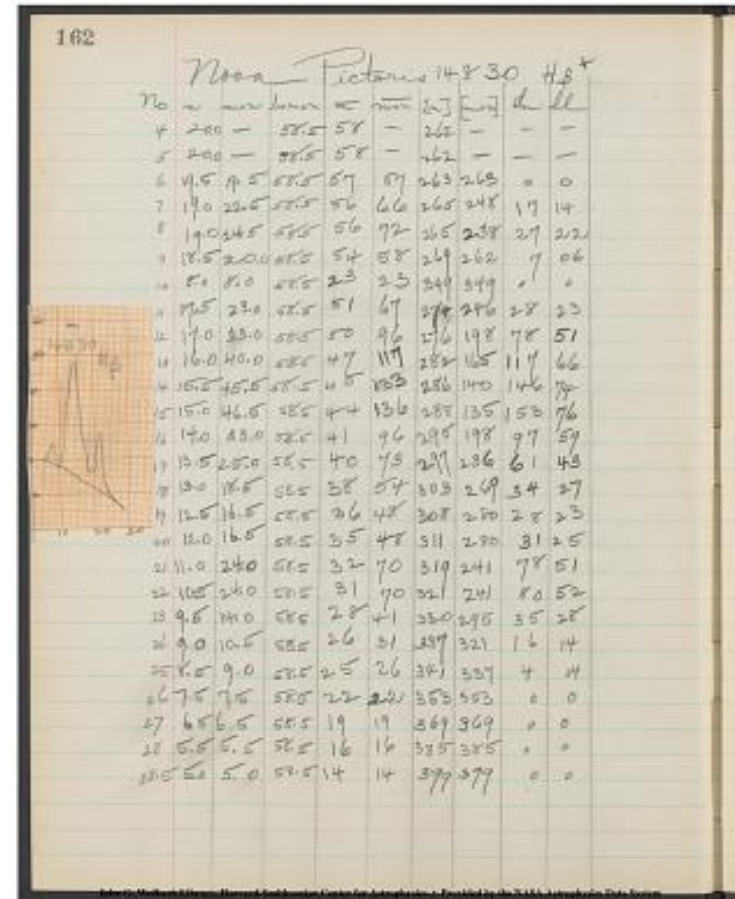 162
Nova Pictures 14830 Hβ
No
4 200 — 58.5 58 — 262 — — —
5 200 — 58.5 58 — 262 — — —
6 19.5 19.5 58.5 57 57 263 263 0 0
7 19.0 22.5 58.5 56 66 265 248 17 14
8 19.0 24.5 58.5 56 72 265 238 27 22
9 18.5 20.0 58.5 54 58 269 262 7 06
8.0 8.0 58.5 23 23 349 349 0 0
11 17.5 23.0 58.5 51 67 246 28 23
12 17.0 33.0 58.5 50 96 276 198 78 51
13 16.0 40.0 58.5 47 117 282 165 117 66
14 15.5 45.5 58.5 45 133 286 140 146
15 15.0 46.5 58.5 44 136 288 135 153 76
16 14.0 33.0 58.5 41 96 295 198 97 59
17 13.5 25.0 58.5 40 73 297 236 61 43
18 13.0 18.5 58.5 38 54 303 269 34 27
19 12.5 16.5 58.5 36 48 308 280 28 23
20 12.0 16.5 58.5 35 48 311 280 31 25
21 11.0 24.0 58.5 32 70 319 241 78 51
22 10.5 24.0 58.5 31 70 321 241 80 52
23 9.5 14.0 58.5 28 41 330 295 35 28
9.0 10.5 58.5 26 31 337 321 16 14
25 8.5 9.0 58.5 25 26 341 337 4
26 7.5 7.5 58.5 22 22 353 353 0 0
27 6.5 6.5 58.5 19 19 369 369 0 0
28 5.5 5.5 58.5 16 16 385 385 0 0
28.5 5.0 5.0 58.5 14 14 0 0
14830
Hβ